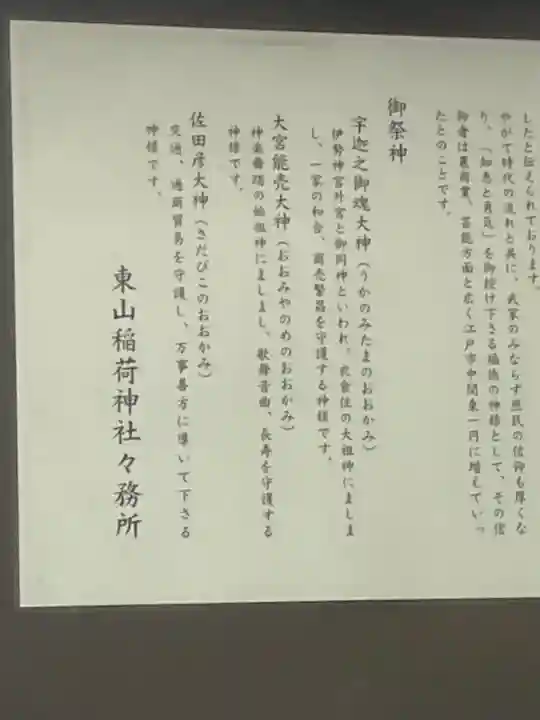 したと伝えられております。
やがて時代の流れと共に、武家のみならず庶民の信仰も厚くな
り、「知恵と勇気」を御授け下さる福徳の神様として、その信
仰者は農商業、芸能方面と広く江戸市中関東一円に増えていっ
たとのことです。
御祭神
宇迦之御魂大神（うかのみたまのおおかみ）
伊勢神宮外宮と御同神といわれ、衣食住の大祖神にましま
し、一家の和合、商売繁昌を守護する神様です。
大宮能売大神（おおみやのめのおおかみ）
神楽舞踊の始祖神にましまし、歌舞音曲、長寿を守護する
神様です。
佐田彦大神（さたびこのおおかみ）
交通、通商貿易を守護し、万事善方に導いて下さる
神様です。
東山稲荷神社々務所